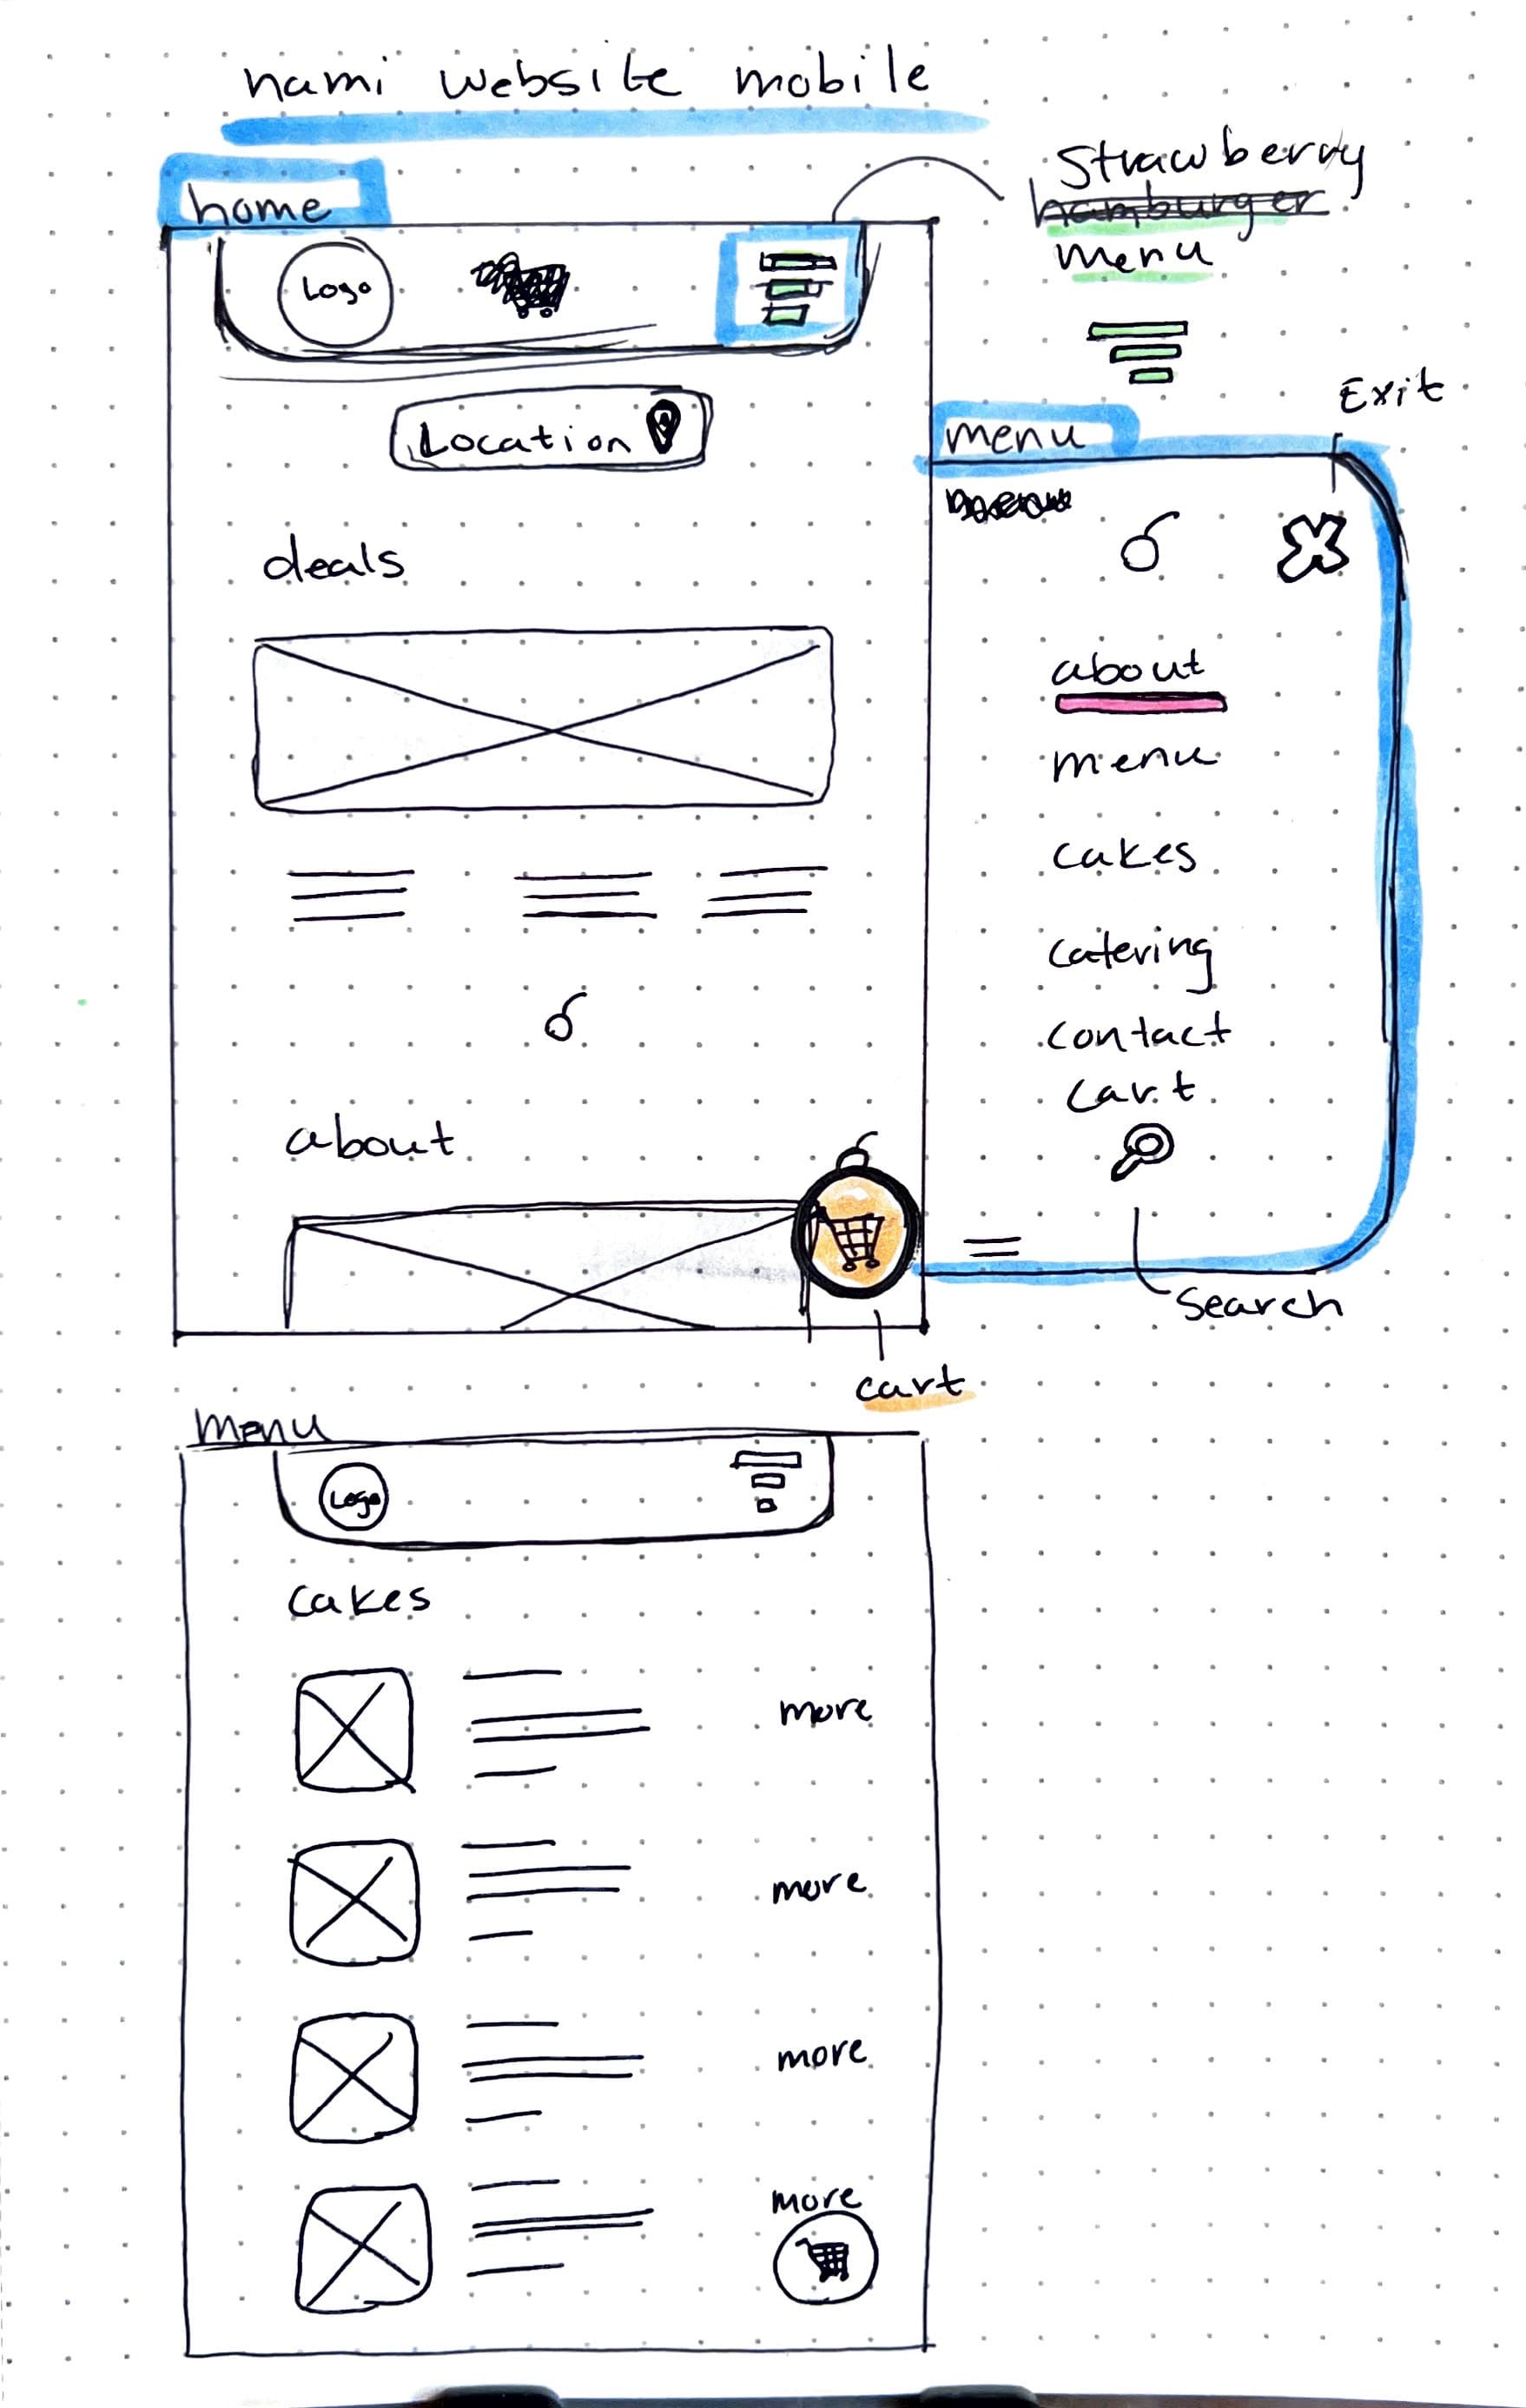 nami website mobile
home
Strawberry
hamburger
menu
Logo
Location
Exit
menu
deals
about
menu
cakes
catering
contact
cart
about
Search
cart
menu
Logo
cakes
more
more
more
more